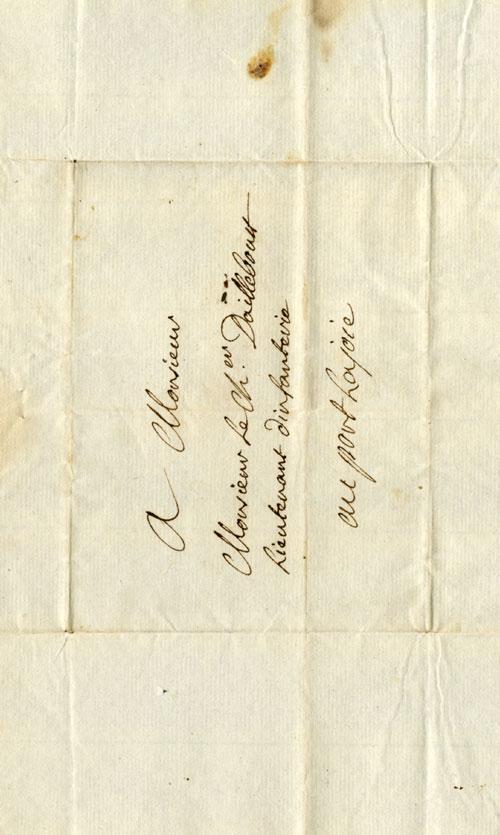 A Monsieur
Monsieur Le Ch.er Däillebout
Lieutenant d'infanterie
au port Lajoie